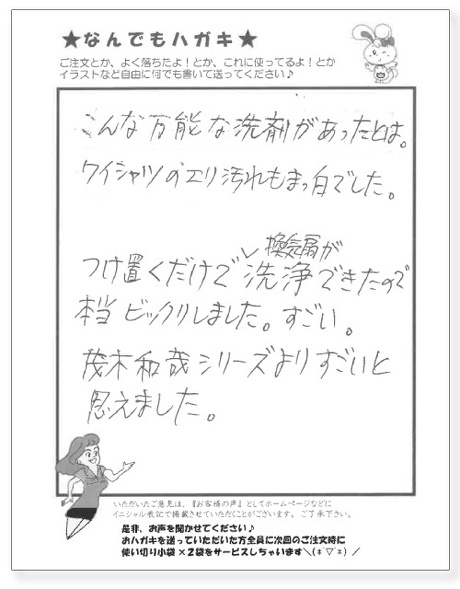 ★なんでもハガキ★
ご注文とか、よく落ちたよ！とか、これに使ってるよ！とか
イラストなど自由に何でも書いて送ってください♪
こんな万能な洗剤があったとは。
ワイシャツのエリ汚れもまっ白でした。
換気扇が
つけ置くだけで洗浄できたので
本当ビックリしました。すごい。
茂木和哉シリーズよりすごいと
思えました。
いただいたご意見は、『お客様の声』としてホームページなどに
イニシャル表記で掲載させていただくことがございます。ご了承下さい。
是非、お声を聞かせてください♪
おハガキを送っていただいた方全員に次回のご注文時に
使い切り小袋×2袋をサービスしちゃいます＼(*´▽`*)／